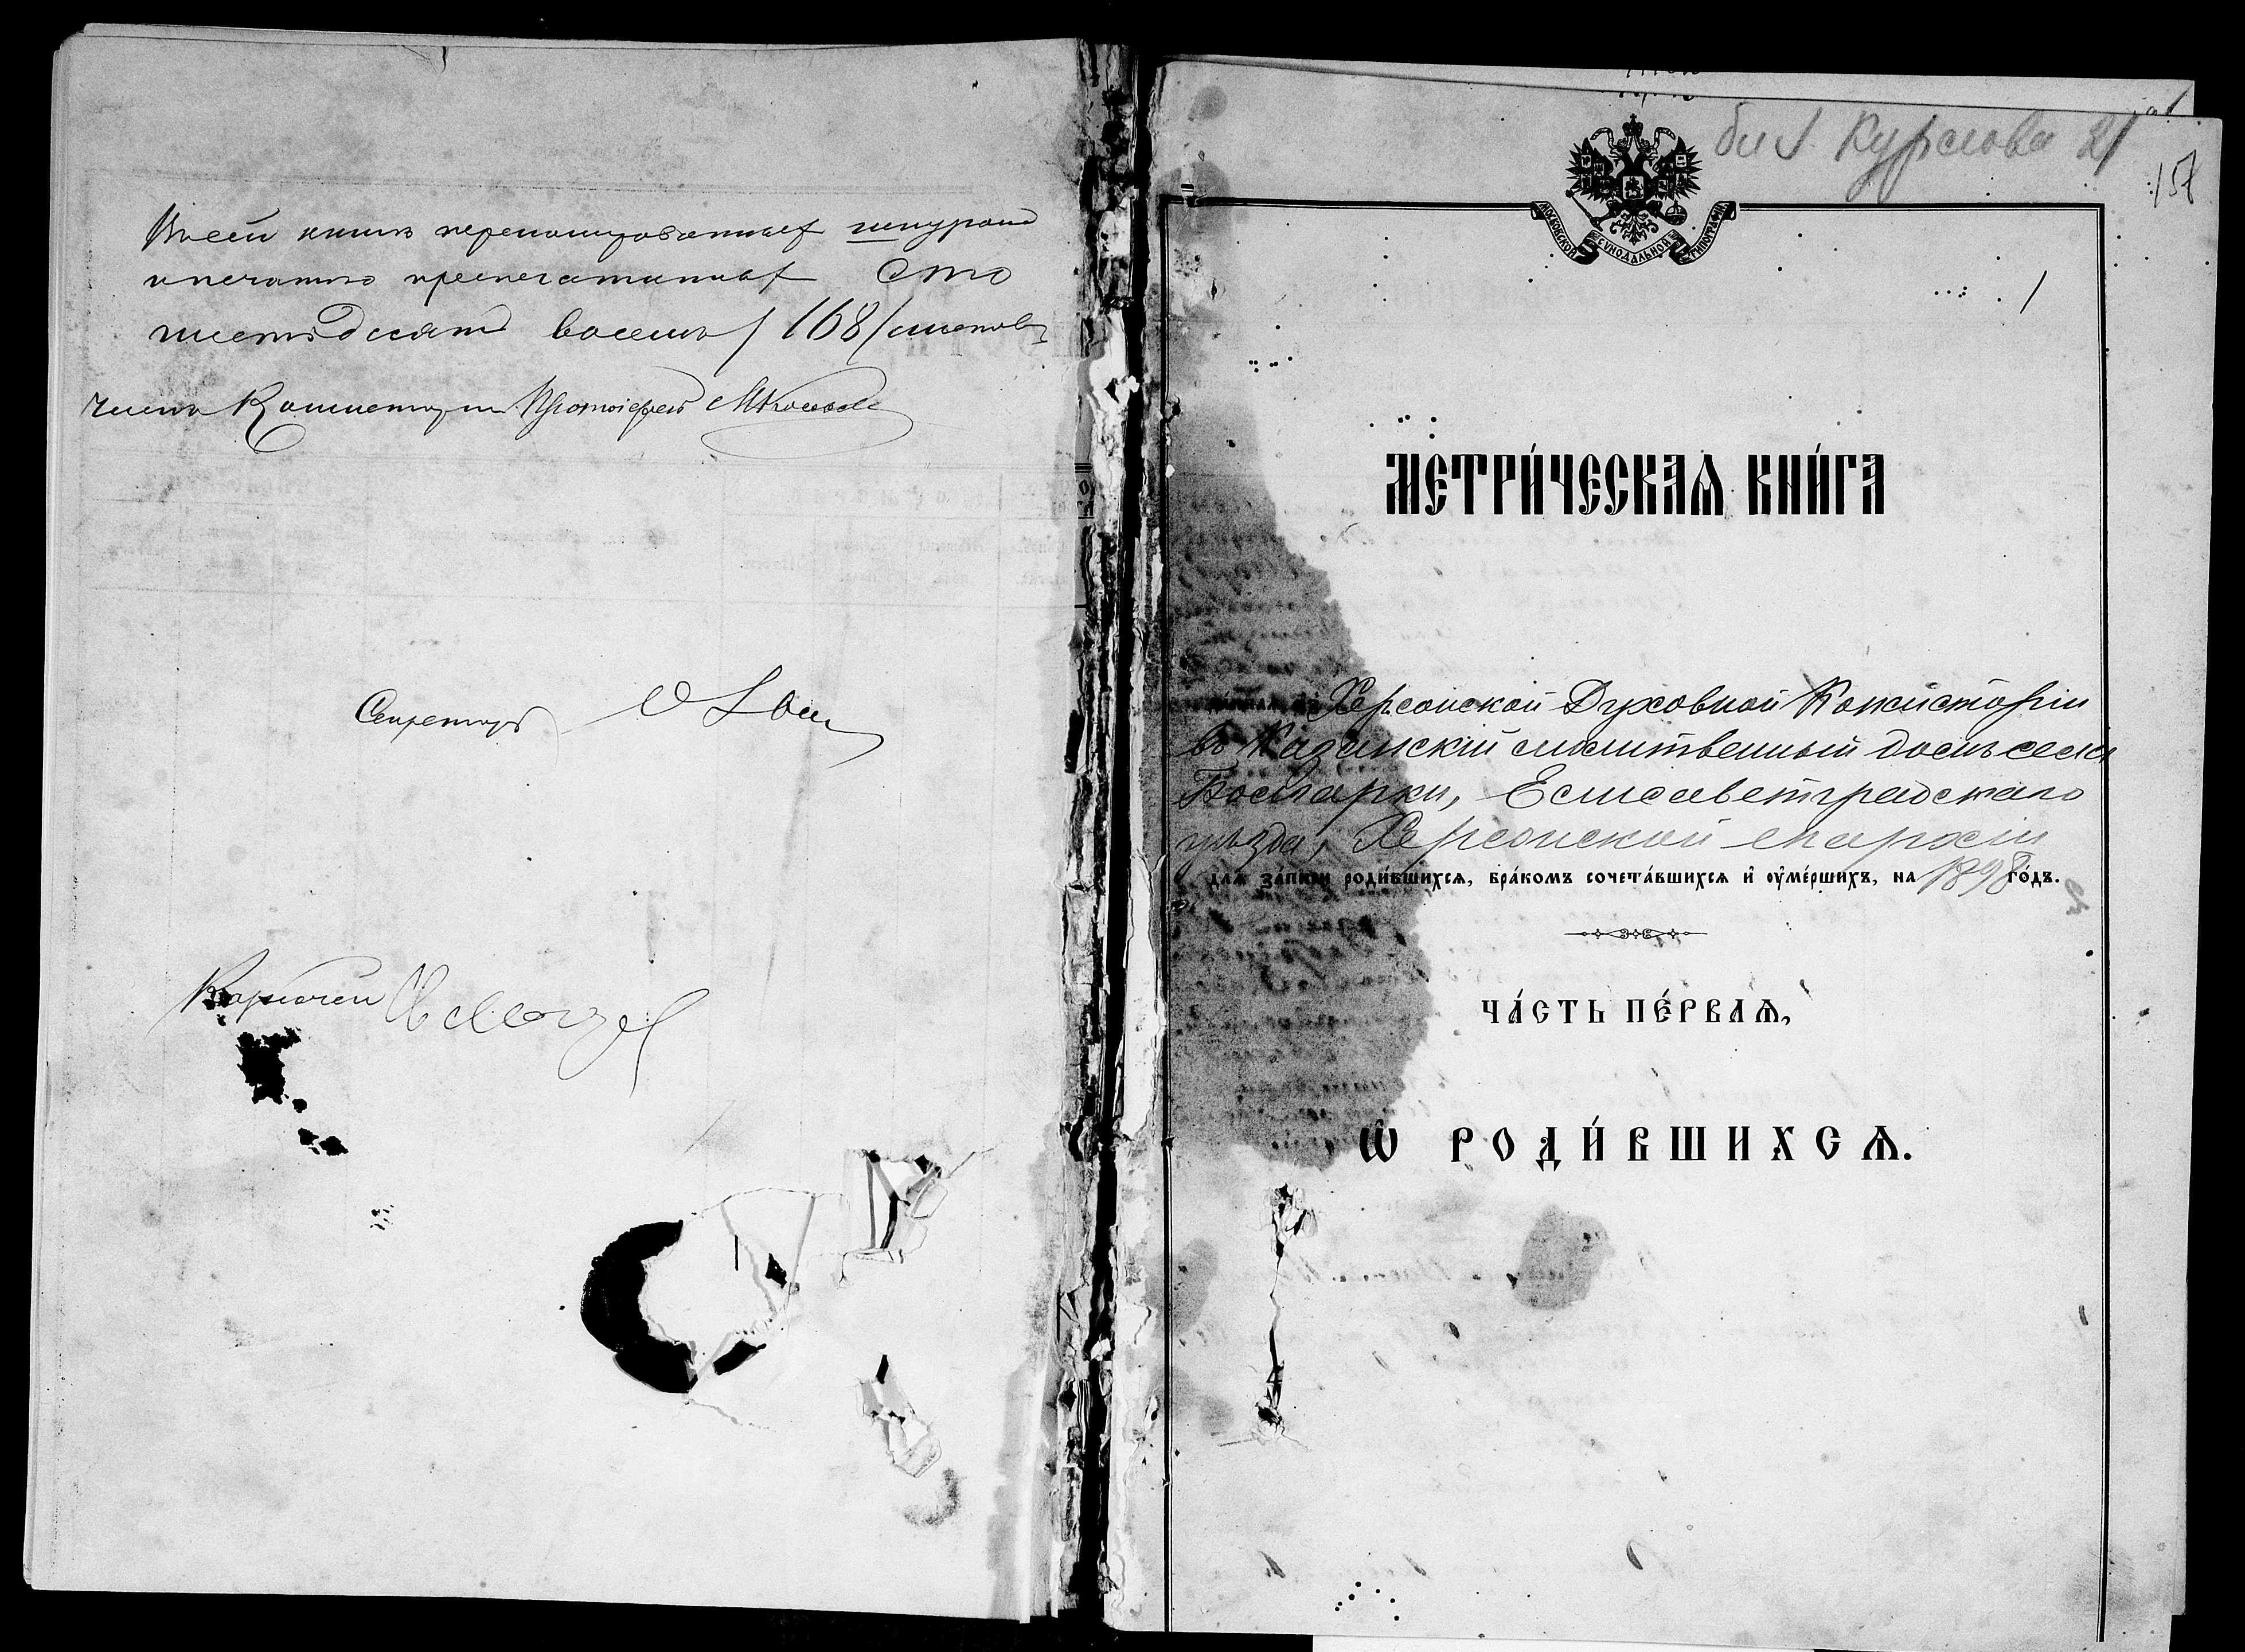 Въ сей книгѣ перенумерованныхъ шнуромъ
и печатью пропечатанныхъ Сто
шестьдесятъ восемь /168/ листовъ
Членъ Консисторіи Протоіерей
Секретарь
Казначей
бл Курлова 21
157
МОСКОВСКОЙ СѴНОДАЛЬНОЙ ТИПОГРАФІИ
1
МЕТРИ́ЧЕСКАѦ КНИ́ГА
Херсонской Духовной Консисторіи
въ Казанскій молитвенный домъ села
Болгарки, Елисаветградскаго
уѣзда, Херсонской епархіи
длѧ за́писи роди́вшихсѧ, бра́комъ сочета́вшихсѧ и҆ ѹ҆ме́ршихъ, на 1898 го́дъ.
ЧА́СТЬ ПЕ́РВАѦ,
Ѽ РОДИ́ВШИХСѦ.